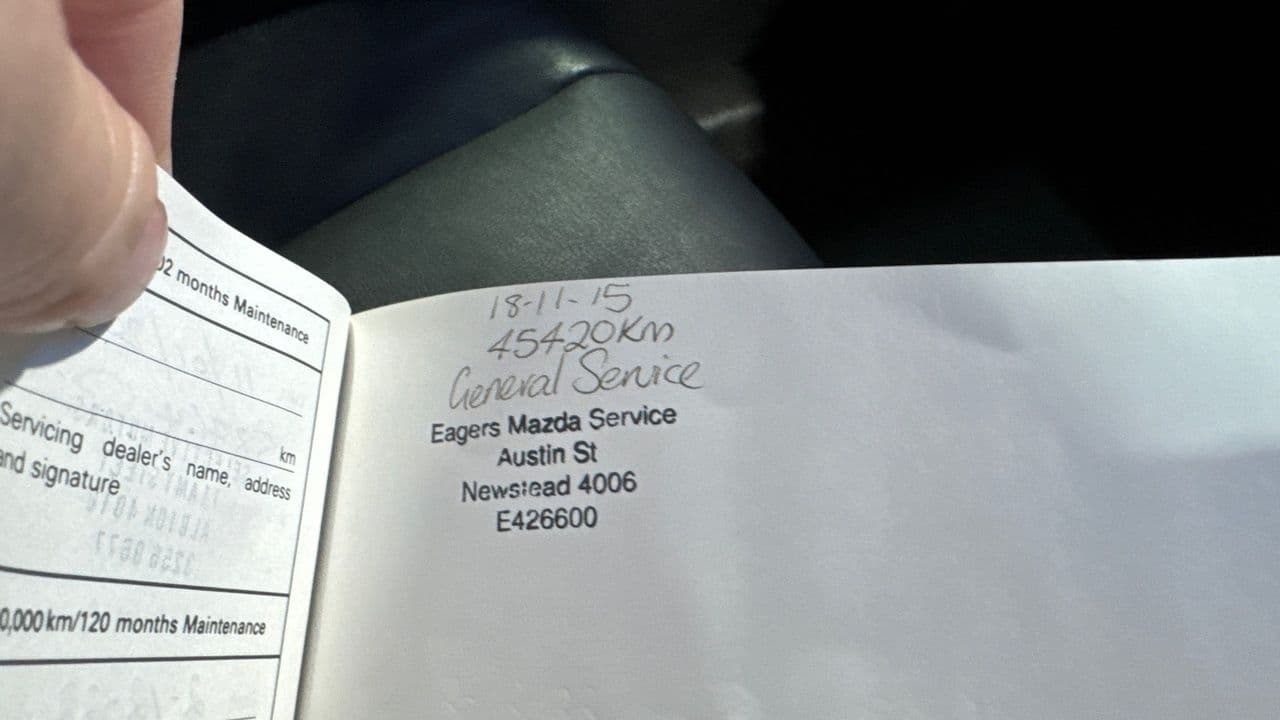 02 months Maintenance
km
Servicing dealer's name, address
and signature
0,000 km/120 months Maintenance
18-11-15
45420KM
General Service
Eagers Mazda Service
Austin St
Newstead 4006
E426600